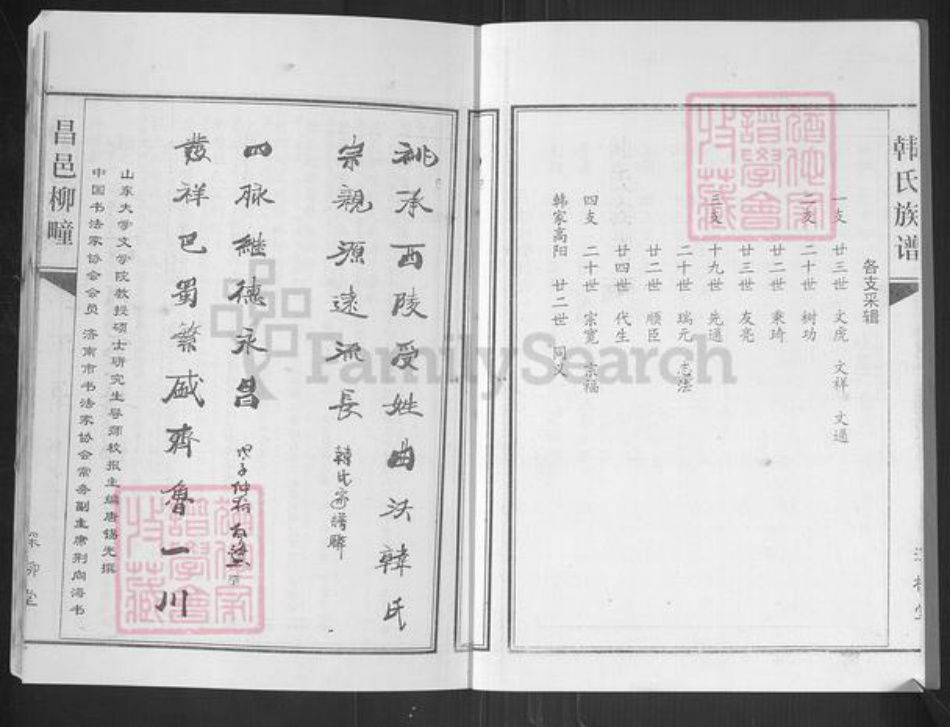 韩氏族谱
各支采辑
一支 廿三世 文虎 文祥 文通
二支 二十世 树功
廿二世 秉琦
廿三世 友亮
三支 十九世 先通
二十世 瑞元 志法
廿二世 顺臣
廿四世 代生
四支 二十世 宗宽 宗福
韩家高阳 廿二世 同义
祧承西陵受姓曲沃韩氏
宗親源遠流長 韓氏家譜聯
四脉継德永昌
發祥巴蜀繁盛齊魯一川
山东大学文学院教授硕士研究生导师校报主编唐锡光撰
中国书法家协会会员 济南市书法家协会常务副主席荆向海书
昌邑柳疃
FamilySearch